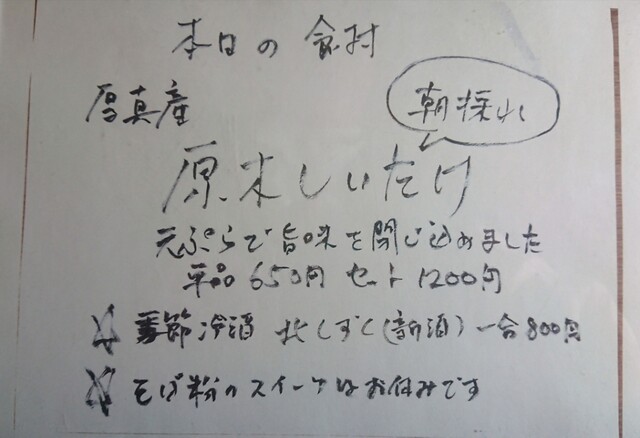 本日の食材
厚真産
朝採れ
原木しいたけ
天ぷらで旨味を閉じ込めました
単品650円 セット1200円
季節冷酒 北しずく(新酒)一合800円
そば粉のスイーツはお休みです